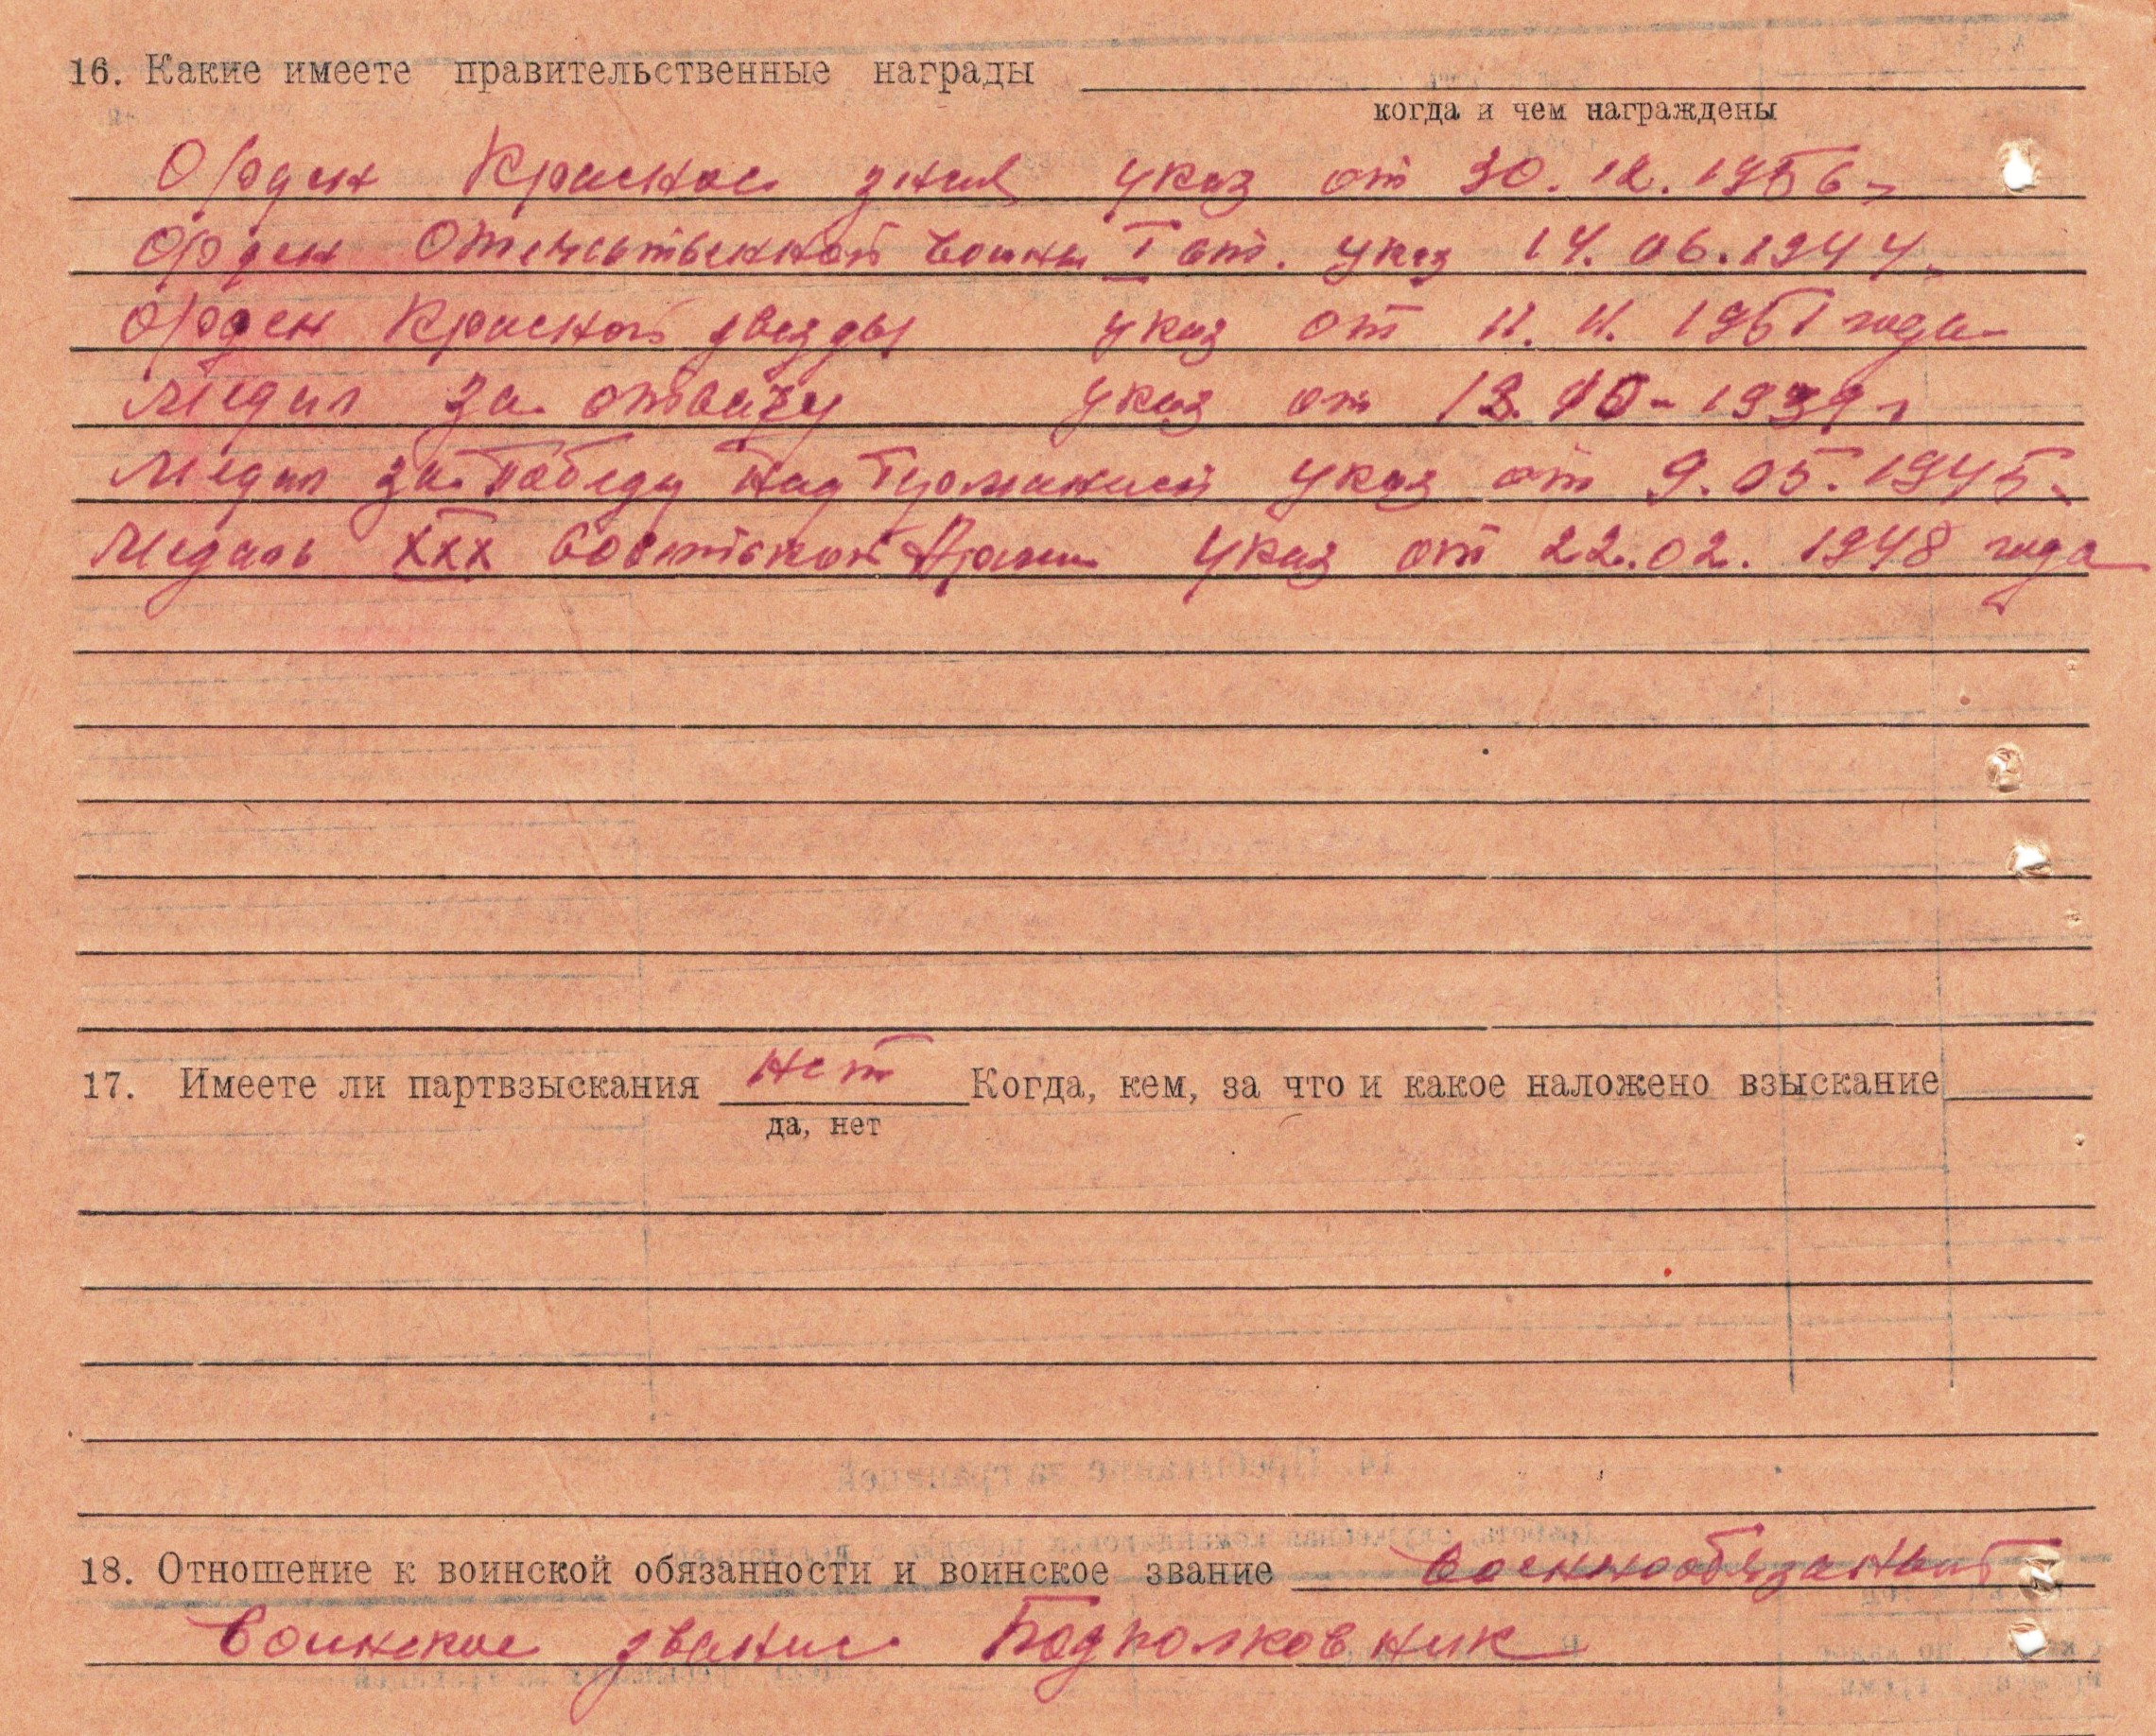 16. Какие имеете правительственные награды
когда и чем награждены
Орден Красное знам указ от 30.12.1956г
Орден Отечественной войны I ст. указ 14.06.1944г
Орден Красной звезды указ от 11.11.1951 года
Медал за отвагу указ от 13.10-1939г
Медал за Победу над Германией указ от 9.05.1945г
Медаль XXX Советской Армии указ от 22.02.1948 года
17. Имеете ли партвзыскания нет Когда, кем, за что и какое наложено взыскание
да, нет
18. Отношение к воинской обязанности и воинское звание военнообязаный
Воинское звание Подполковник